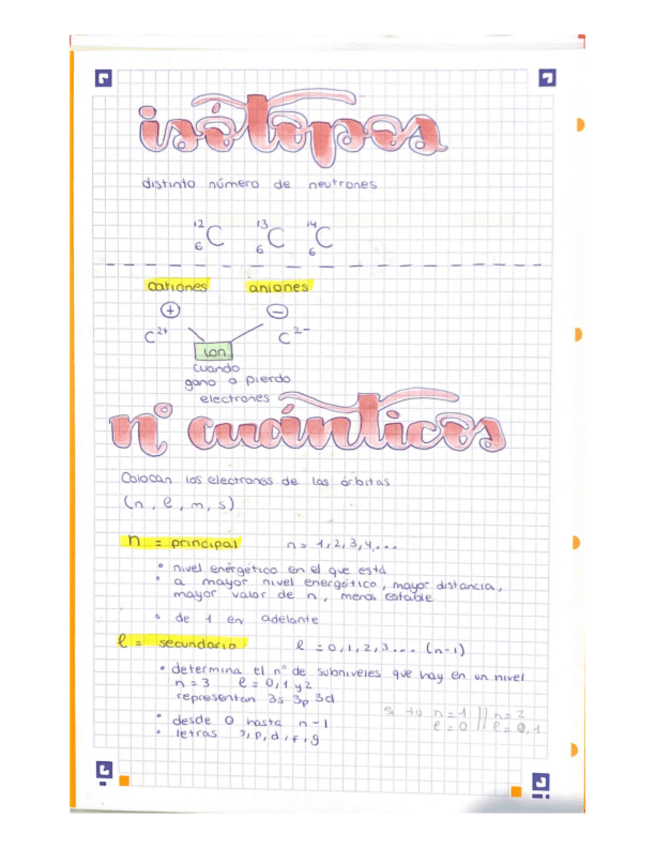 isótopos
distinto número de neutrones
¹²₆C ¹³₆C ¹⁴₆C
cationes aniones
+ −
C²⁺ C²⁻
ion
cuando
gano o pierdo
electrones
nº cuánticos
Colocan los electrones de las órbitas
(n, l, m, s)
n = principal n = 1, 2, 3, 4, ...
• nivel energético en el que está
• a mayor nivel energético, mayor distancia,
mayor valor de n, menos estable
• de 1 en adelante
l = secundario l = 0, 1, 2, 3 ... (n-1)
• determina el nº de subniveles que hay en un nivel
n = 3 l = 0, 1 y 2
representan 3s 3p 3d
si tu n = 1 || n = 2
l = 0 || l = 0, 1
• desde 0 hasta n-1
• letras s, p, d, f, g